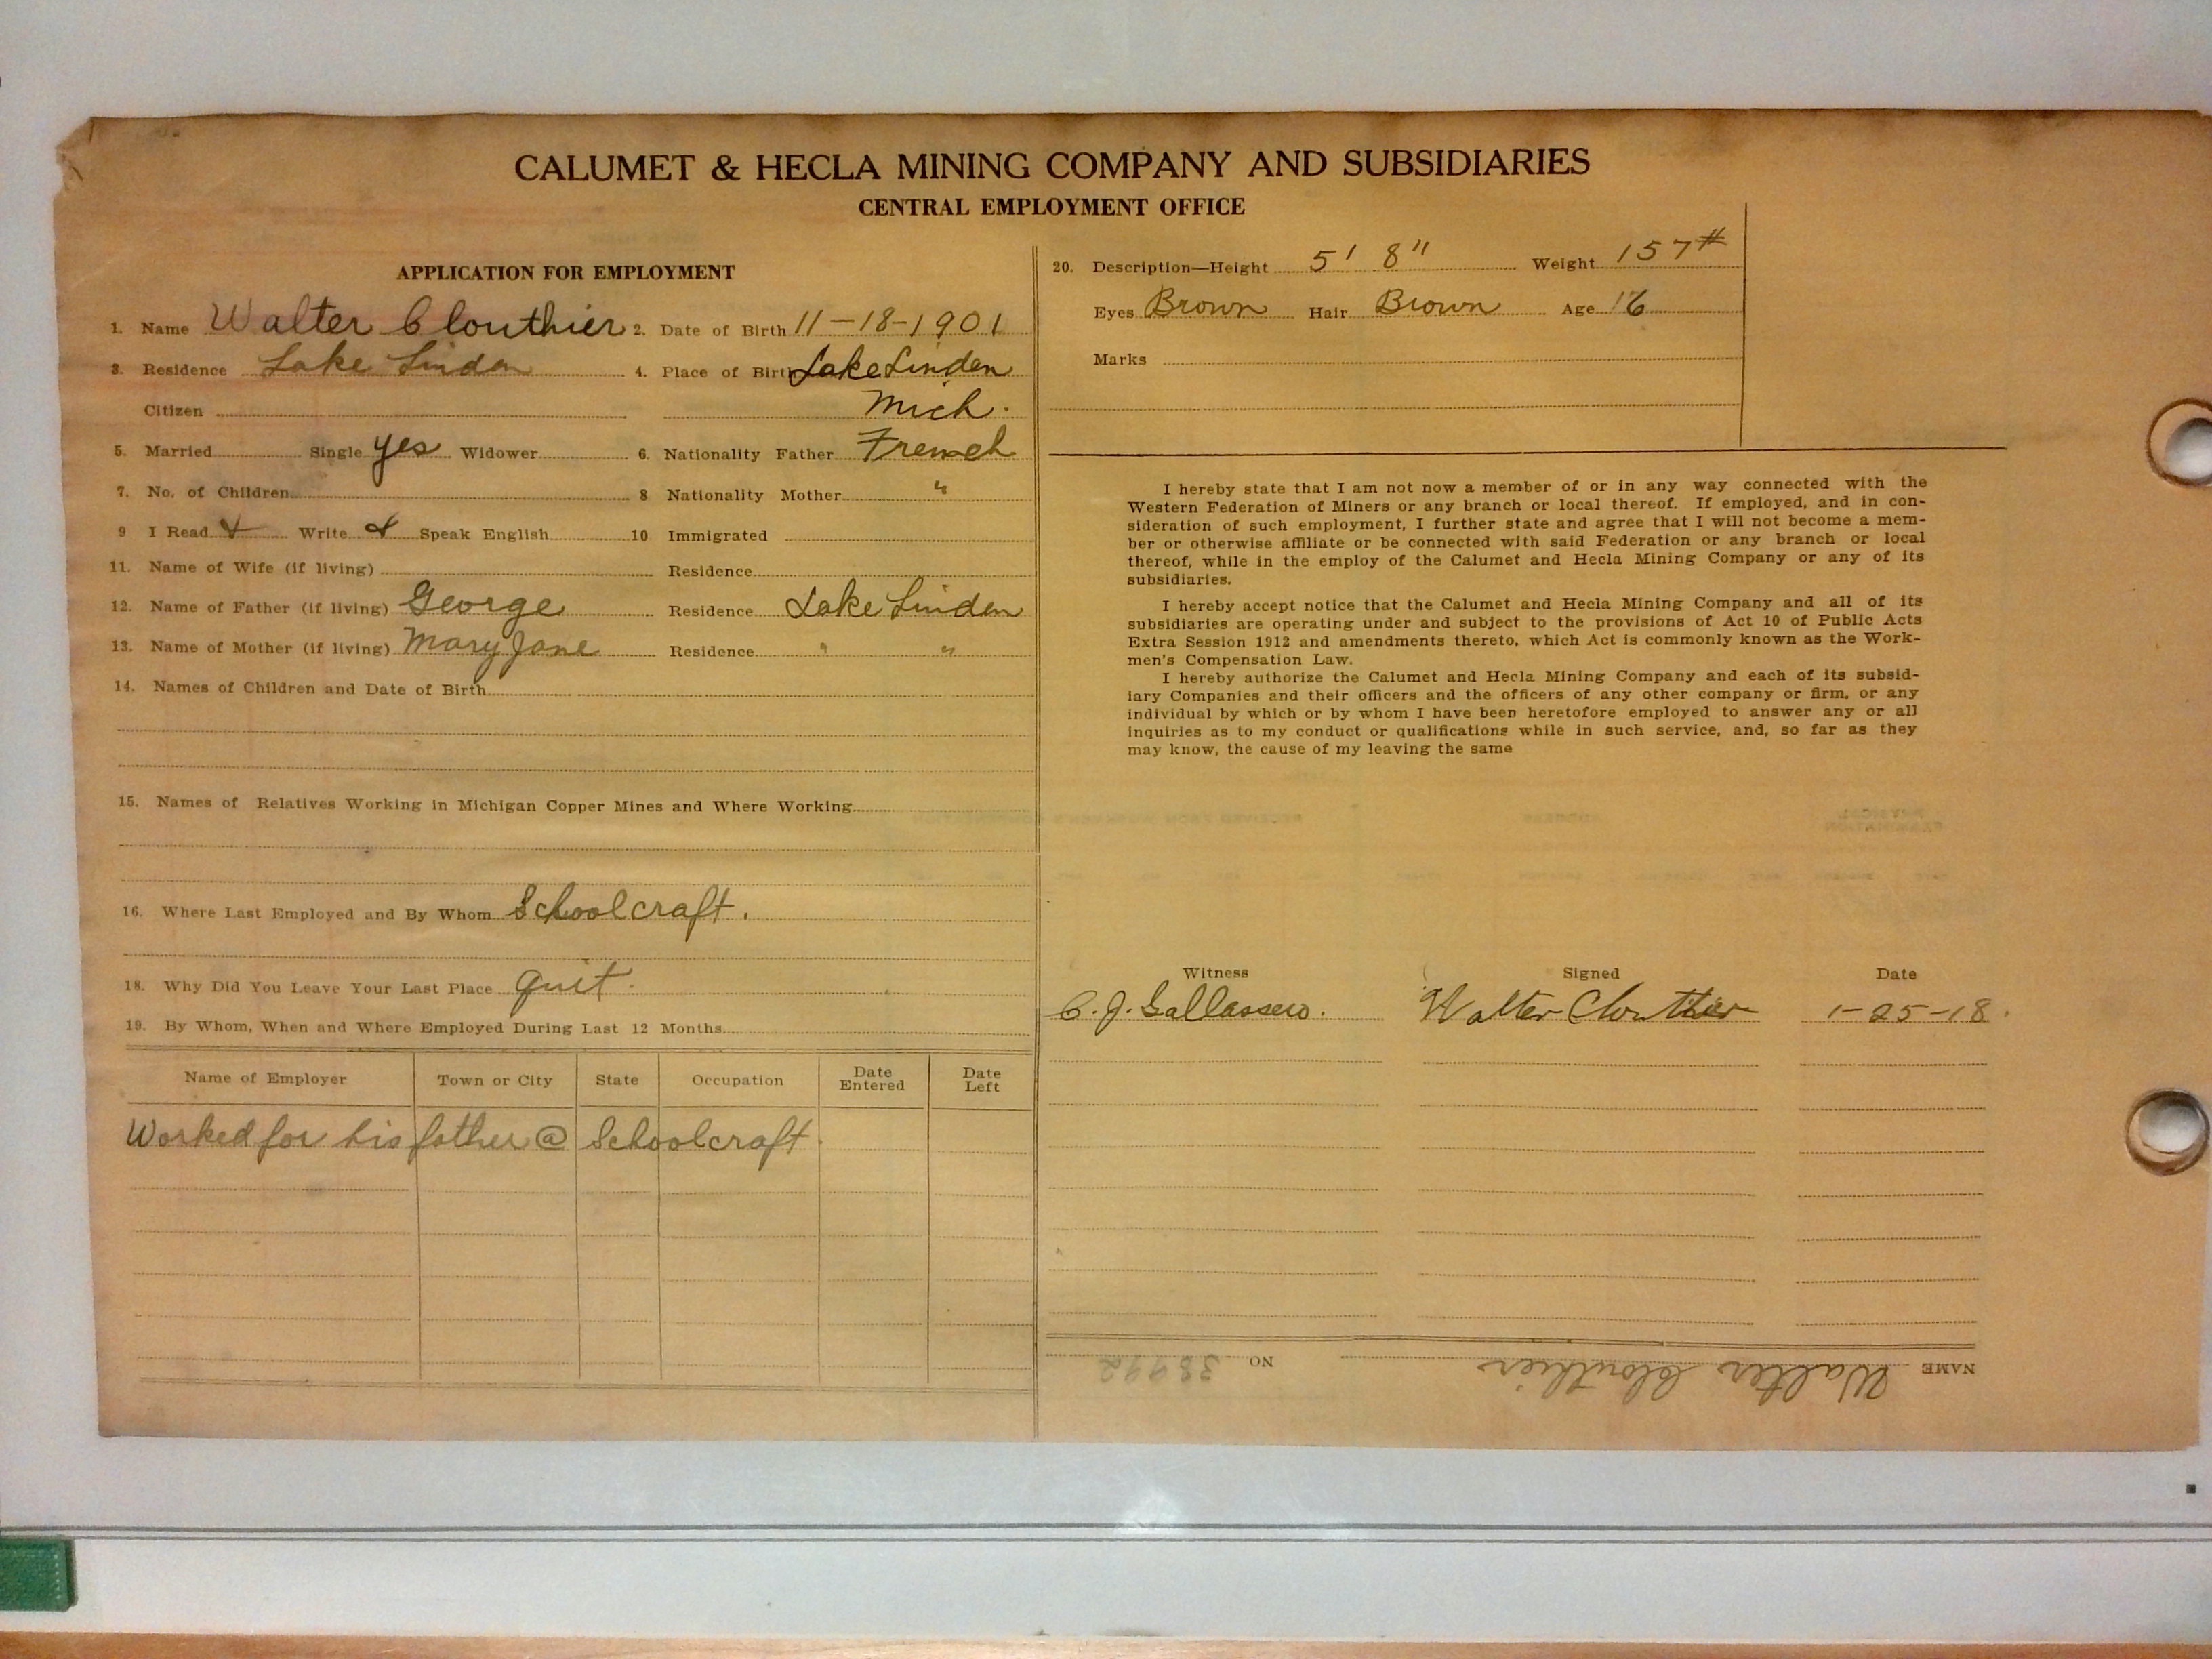 CALUMET & HECLA MINING COMPANY AND SUBSIDIARIES
CENTRAL EMPLOYMENT OFFICE
APPLICATION FOR EMPLOYMENT
1. Name Walter Clouthier 2. Date of Birth 11-18-1901
3. Residence Lake Linden 4. Place of Birth Lake Linden
Citizen Mich.
5. Married Single yes Widower 6. Nationality Father French
7. No. of Children 8 Nationality Mother "
9 I Read & Write & Speak English 10 Immigrated
11. Name of Wife (if living) Residence
12. Name of Father (if living) George Residence Lake Linden
13. Name of Mother (if living) Mary Jane Residence " "
14. Names of Children and Date of Birth
15. Names of Relatives Working in Michigan Copper Mines and Where Working
16. Where Last Employed and By Whom Schoolcraft.
18. Why Did You Leave Your Last Place quit.
19. By Whom, When and Where Employed During Last 12 Months
Name of Employer Town or City State Occupation Date Entered Date Left
Worked for his father @ Schoolcraft.
20. Description—Height 5' 8" Weight 157#
Eyes Brown Hair Brown Age 16
Marks
I hereby state that I am not now a member of or in any way connected with the
Western Federation of Miners or any branch or local thereof. If employed, and in con-
sideration of such employment, I further state and agree that I will not become a mem-
ber or otherwise affiliate or be connected with said Federation or any branch or local
thereof, while in the employ of the Calumet and Hecla Mining Company or any of its
subsidiaries.
I hereby accept notice that the Calumet and Hecla Mining Company and all of its
subsidiaries are operating under and subject to the provisions of Act 10 of Public Acts
Extra Session 1912 and amendments thereto, which Act is commonly known as the Work-
men's Compensation Law.
I hereby authorize the Calumet and Hecla Mining Company and each of its subsid-
iary Companies and their officers and the officers of any other company or firm, or any
individual by which or by whom I have been heretofore employed to answer any or all
inquiries as to my conduct or qualifications while in such service, and, so far as they
may know, the cause of my leaving the same
Witness Signed Date
C. J. Walter Clouthier 1-25-18.
NAME Walter Clouthier NO